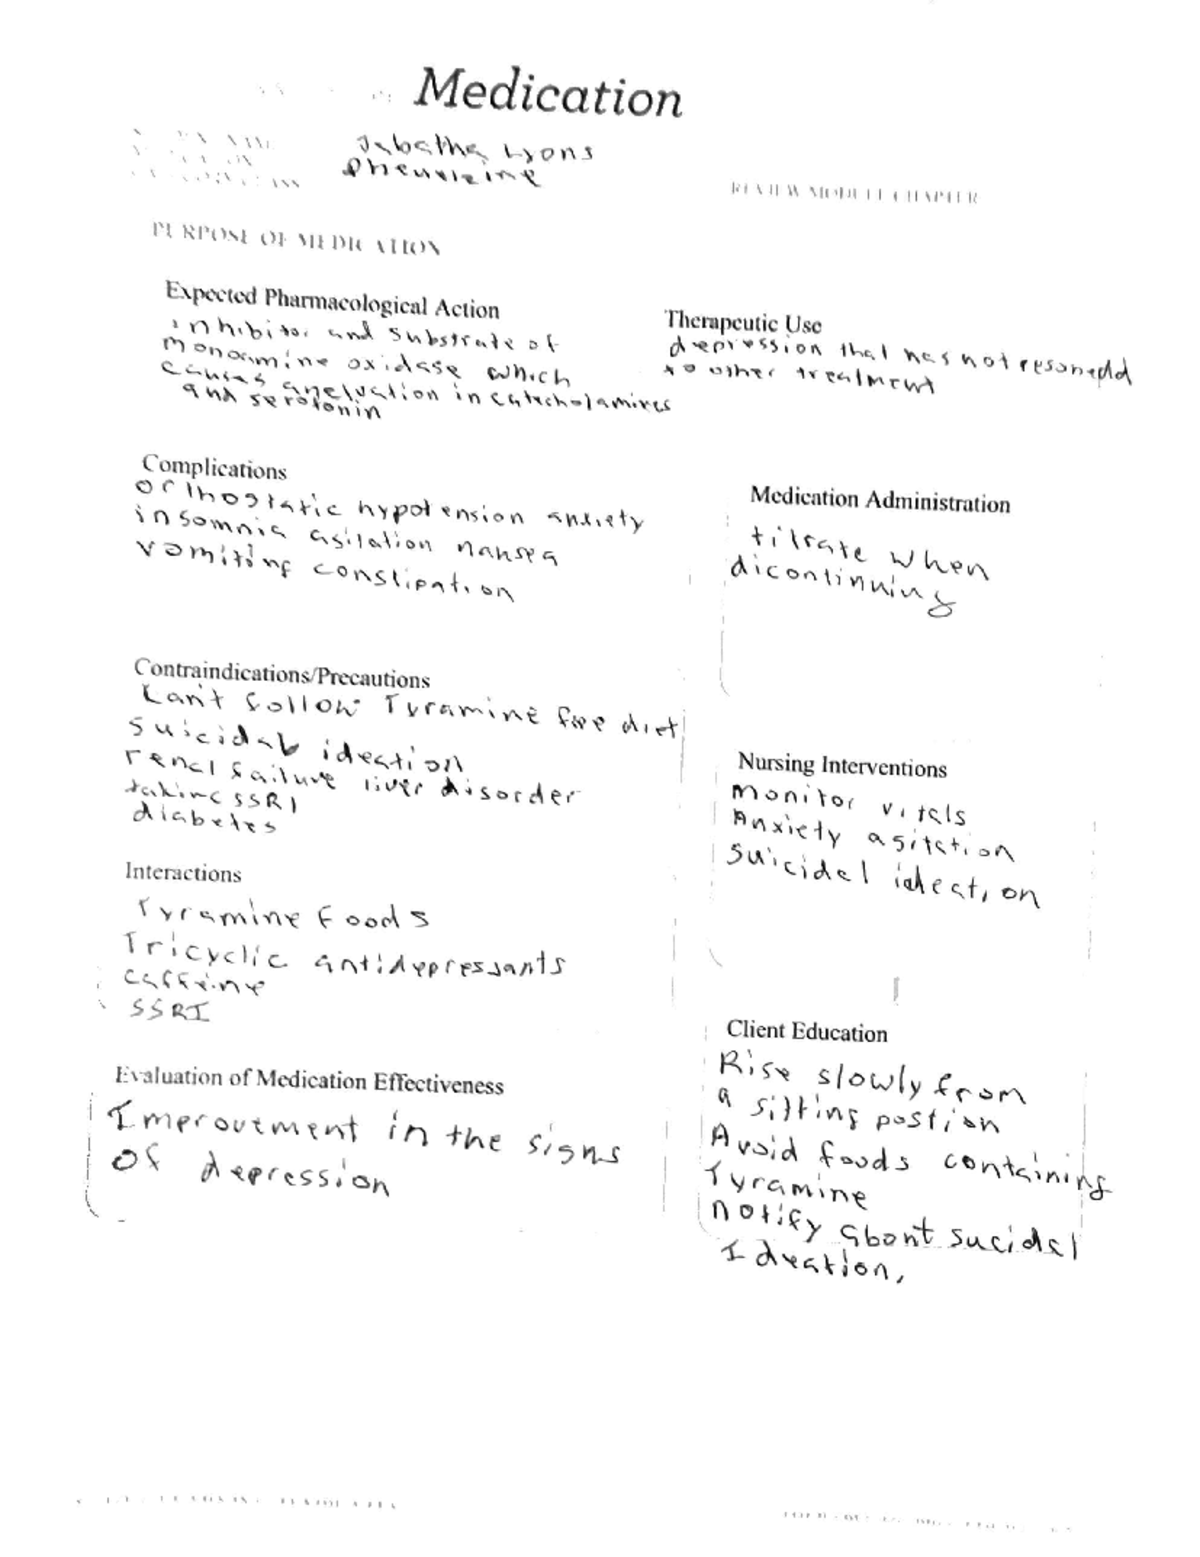 Medication
Tabatha Lyons
Phenelzine
REVIEW MODULE CHAPTER
PURPOSE OF MEDICATION
Expected Pharmacological Action
inhibitor and substrate of
monoamine oxidase which
causes an eluvation in catecholamines
and serotonin
Therapeutic Use
depression that has not resonedd
to other treatment
Complications
orthostatic hypotension anxiety
insomnia agitation nausea
vomiting constipation
Medication Administration
titrate when
dicontinuing
Contraindications/Precautions
Can't follow Tyramine free diet
suicidal ideation
renal failure liver disorder
taking SSRI
diabetes
Nursing Interventions
monitor vitals
Anxiety agitation
suicidal ideation
Interactions
Tyramine foods
Tricyclic antidepressants
caffeine
SSRI
Client Education
Rise slowly from
a sitting postion
Avoid foods containing
Tyramine
notify about sucidal
Ideation,
Evaluation of Medication Effectiveness
Improvement in the signs
of depression